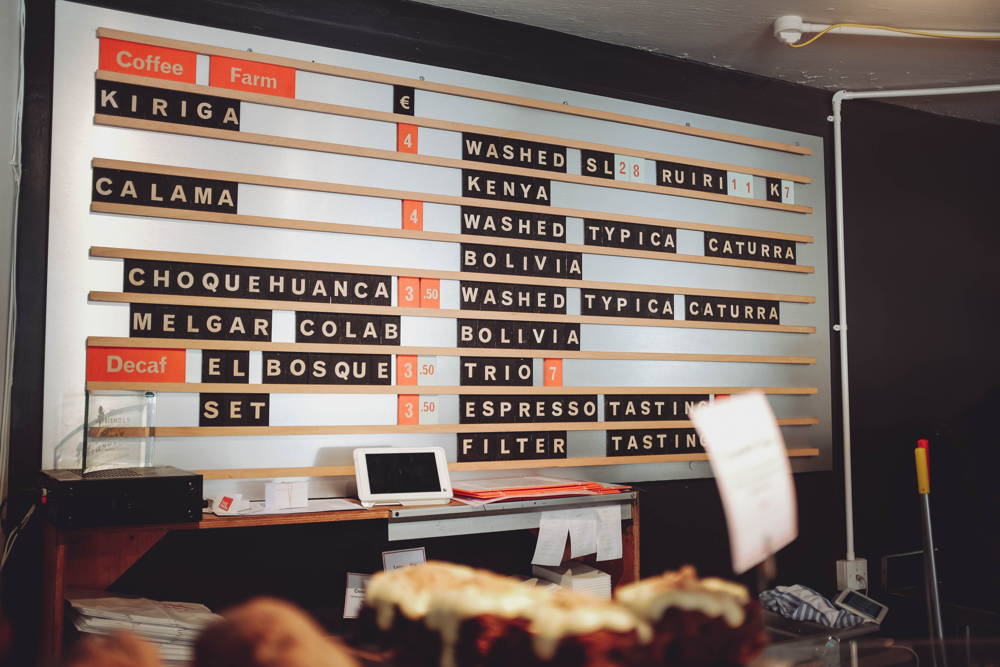 Coffee Farm €
KIRIGA 4 WASHED SL28 RUIRI11 K7
KENYA
CALAMA 4 WASHED TYPICA CATURRA
BOLIVIA
CHOQUEHUANCA 3.50 WASHED TYPICA CATURRA
MELGAR COLAB BOLIVIA
Decaf EL BOSQUE 3.50 TRIO 7
SET 3.50 ESPRESSO TASTING
FILTER TASTING